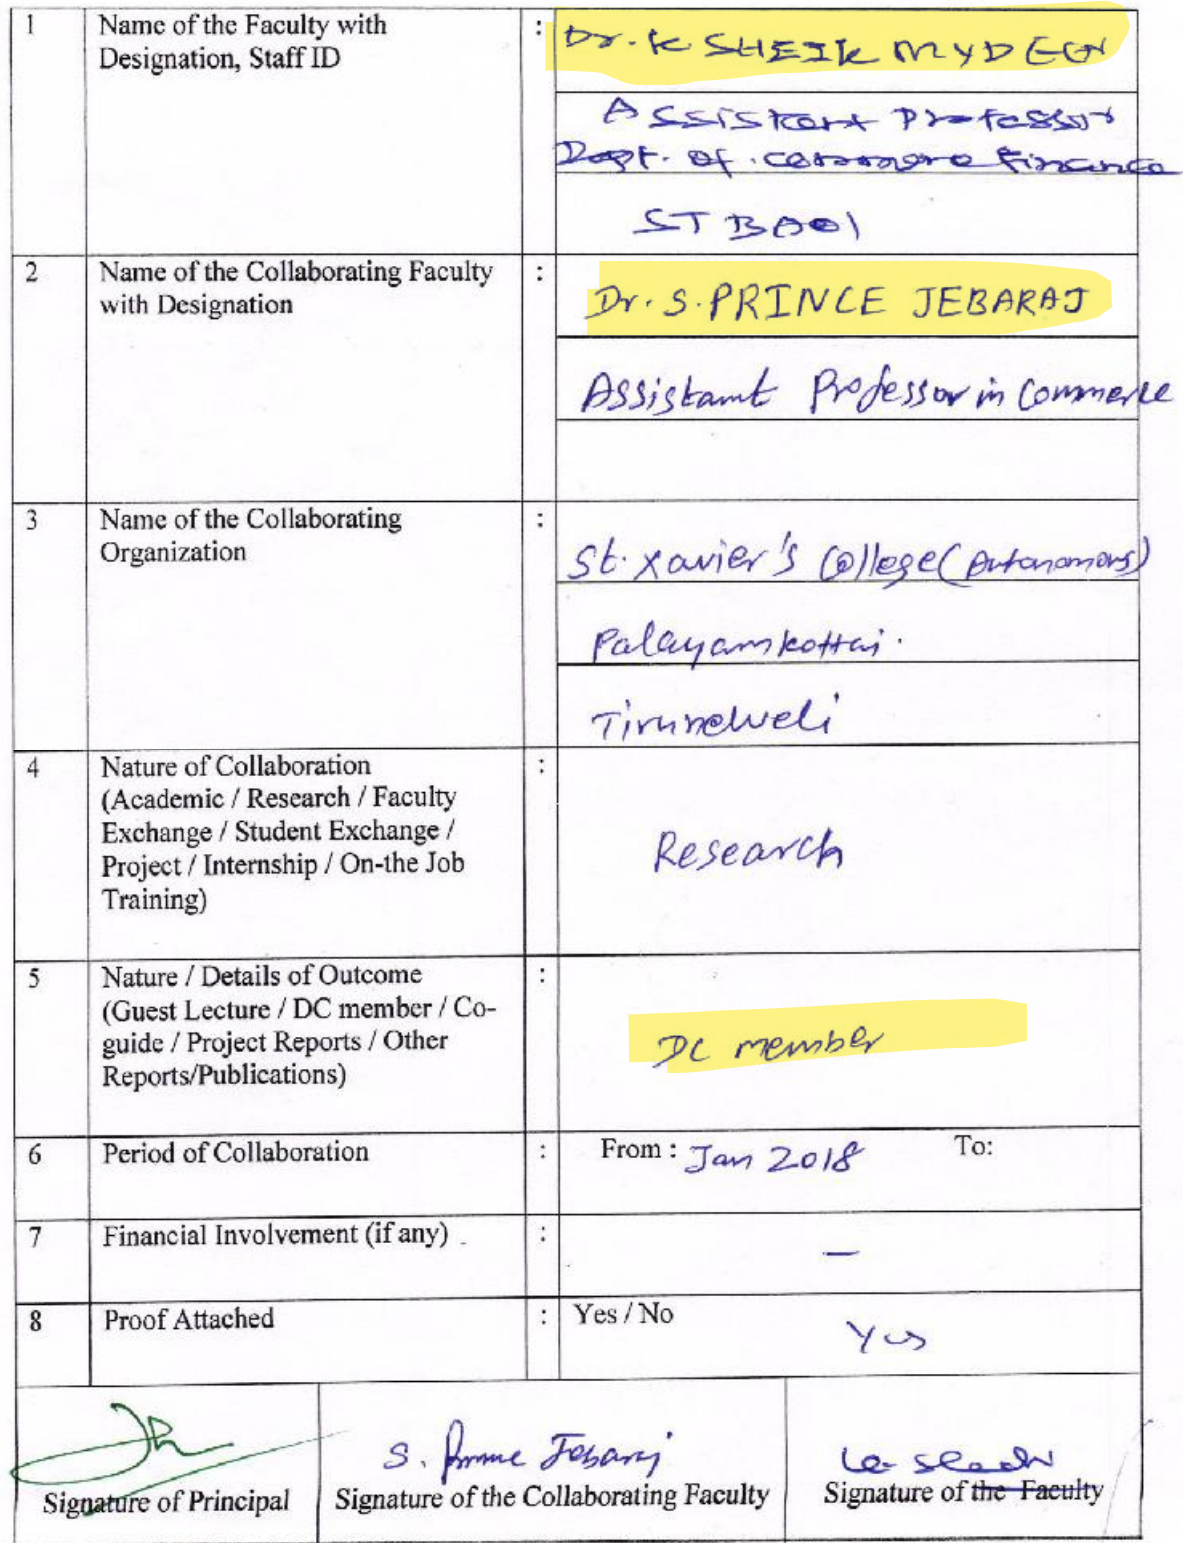 1 Name of the Faculty with : Dr. K SHEIK MYDEEN
Designation, Staff ID
Assistant Professor
Dept. of. Commerce Finance
STBA01
2 Name of the Collaborating Faculty :
with Designation Dr. S. PRINCE JEBARAJ
Assistant Professor in Commerce
3 Name of the Collaborating :
Organization St. Xavier's College (Autonomous)
Palayamkottai.
Tirunelveli
4 Nature of Collaboration :
(Academic / Research / Faculty
Exchange / Student Exchange /
Project / Internship / On-the Job Research
Training)
5 Nature / Details of Outcome :
(Guest Lecture / DC member / Co-
guide / Project Reports / Other DC member
Reports/Publications)
6 Period of Collaboration : From : Jan 2018 To:
7 Financial Involvement (if any) : —
8 Proof Attached : Yes / No Yes
S. Prince Jebaraj
Signature of Principal Signature of the Collaborating Faculty Signature of the Faculty